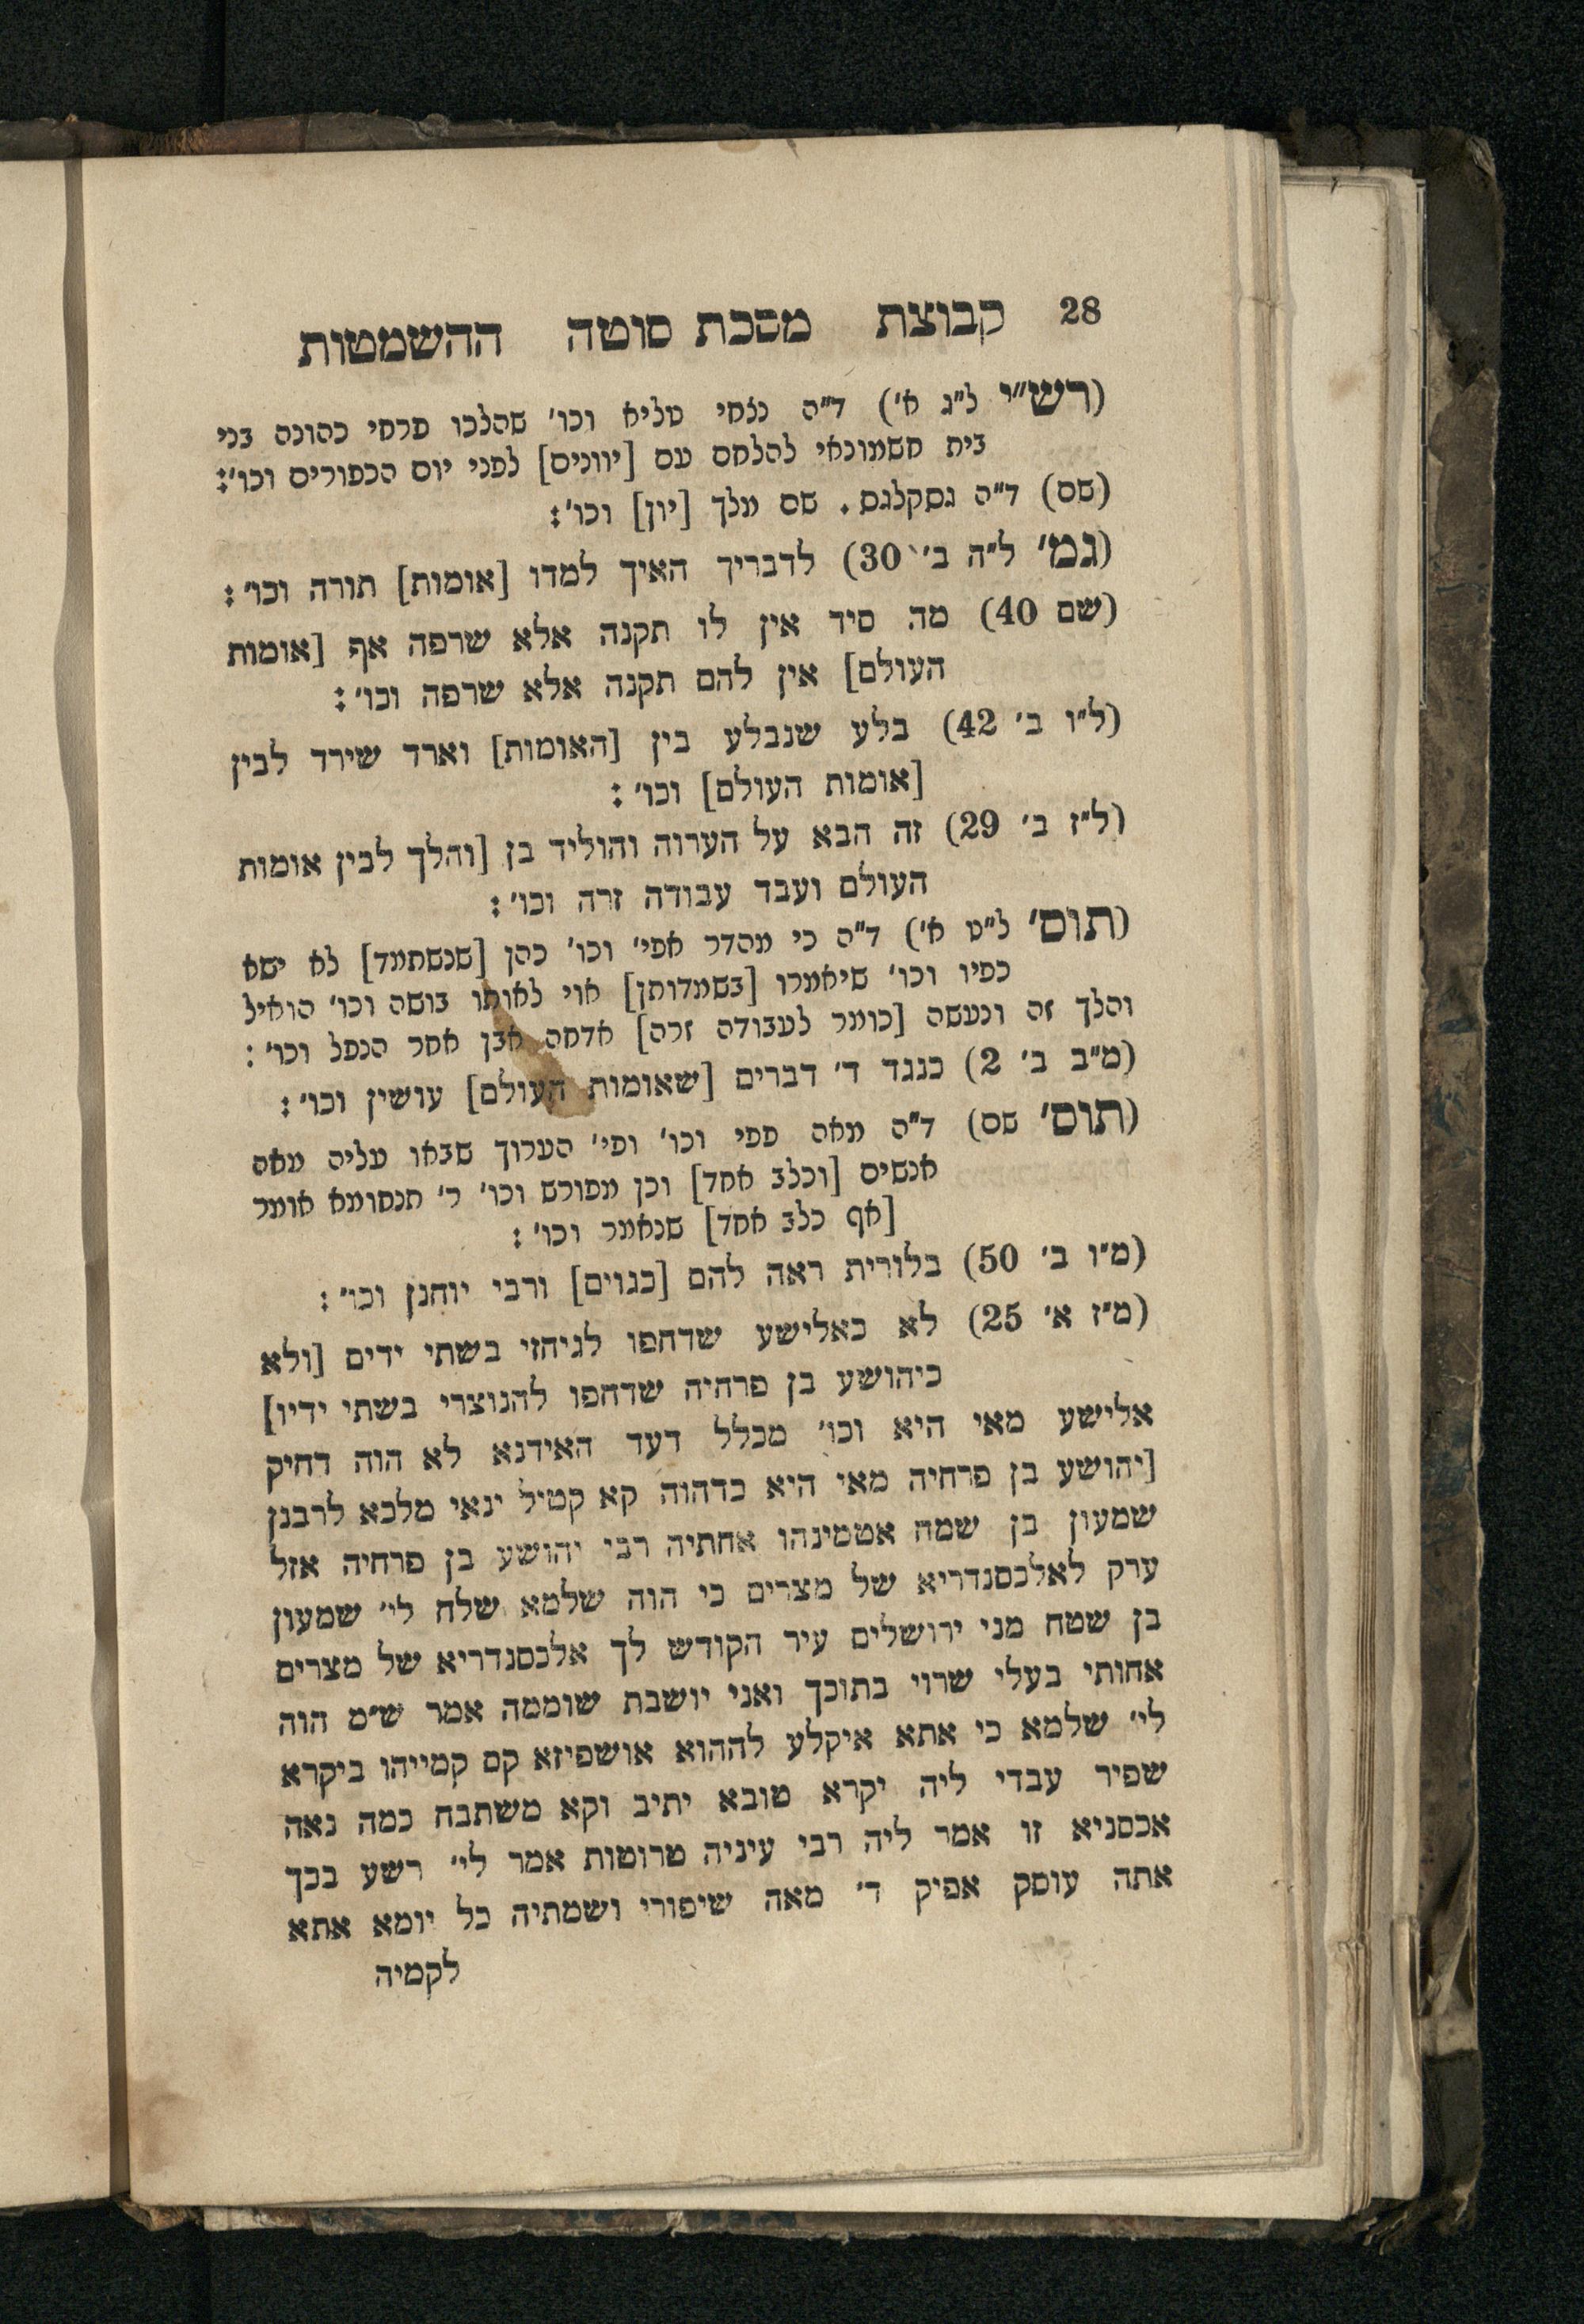 28 קבוצת מסכת סוטה ההשמטות
(רש״י ל״ג א׳) ד״ה נצחי טליא וכו׳ שהלכו פרחי כהונה בני
בית חשמונאי להלחם עם [יוונים] לפני יום הכפורים וכו׳:
(שם) ד״ה גסקלגס. שם מלך [יון] וכו׳:
(גמ׳ ל״ה ב׳ 30) לדבריך האיך למדו [אומות] תורה וכו׳:
(שם 40) מה סיד אין לו תקנה אלא שרפה אף [אומות
העולם] אין להם תקנה אלא שרפה וכו׳:
(ל״ו ב׳ 42) בלע שנבלע בין [האומות] וארד שירד לבין
[אומות העולם] וכו׳:
(ל״ז ב׳ 29) זה הבא על הערוה והוליד בן [והלך לבין אומות
העולם ועבד עבודה זרה וכו׳:
(תוס׳ ל״ט א׳) ד״ה כי מהדר אפי׳ וכו׳ כהן [שנשתמד] לא ישא
כפיו וכו׳ שיאמרו [בשמדותן] אוי לאותו בושה וכו׳ הואיל
והלך זה ונעשה [כומר לעבודה זרה] אדחה אבן אחר הנפל וכו׳:
(מ״ב ב׳ 2) כנגד ד׳ דברים [שאומות העולם] עושין וכו׳:
(תוס׳ שם) ד״ה מאה פפי וכו׳ ופי׳ הערוך שבאו עליה מאה
אנשים [וכלב אחד] וכן מפורש וכו׳ ר׳ תנחומא אומר
[אף כלב אחד] שנאמר וכו׳:
(מ״ו ב׳ 50) בלורית ראה להם [כגוים] ורבי יוחנן וכו׳:
(מ״ז א׳ 25) לא כאלישע שדחפו לגיחזי בשתי ידים [ולא
כיהושע בן פרחיה שדחפו להנוצרי בשתי ידיו]
אלישע מאי היא וכו׳ מכלל דעד האידנא לא הוה דחיק
[יהושע בן פרחיה מאי היא כדהוה קא קטיל ינאי מלכא לרבנן
שמעון בן שטח אטמינהו אחתיה רבי יהושע בן פרחיה אזל
ערק לאלכסנדריא של מצרים כי הוה שלמא שלח לי׳ שמעון
בן שטח מני ירושלים עיר הקודש לך אלכסנדריא של מצרים
אחותי בעלי שרוי בתוכך ואני יושבת שוממה אמר ש״מ הוה
לי׳ שלמא כי אתא איקלע לההוא אושפיזא קם קמייהו ביקרא
שפיר עבדי ליה יקרא טובא יתיב וקא משתבח כמה נאה
אכסניא זו אמר ליה רבי עיניה טרוטות אמר לי׳ רשע בכך
אתה עוסק אפיק ד׳ מאה שיפורי ושמתיה כל יומא אתא
לקמיה